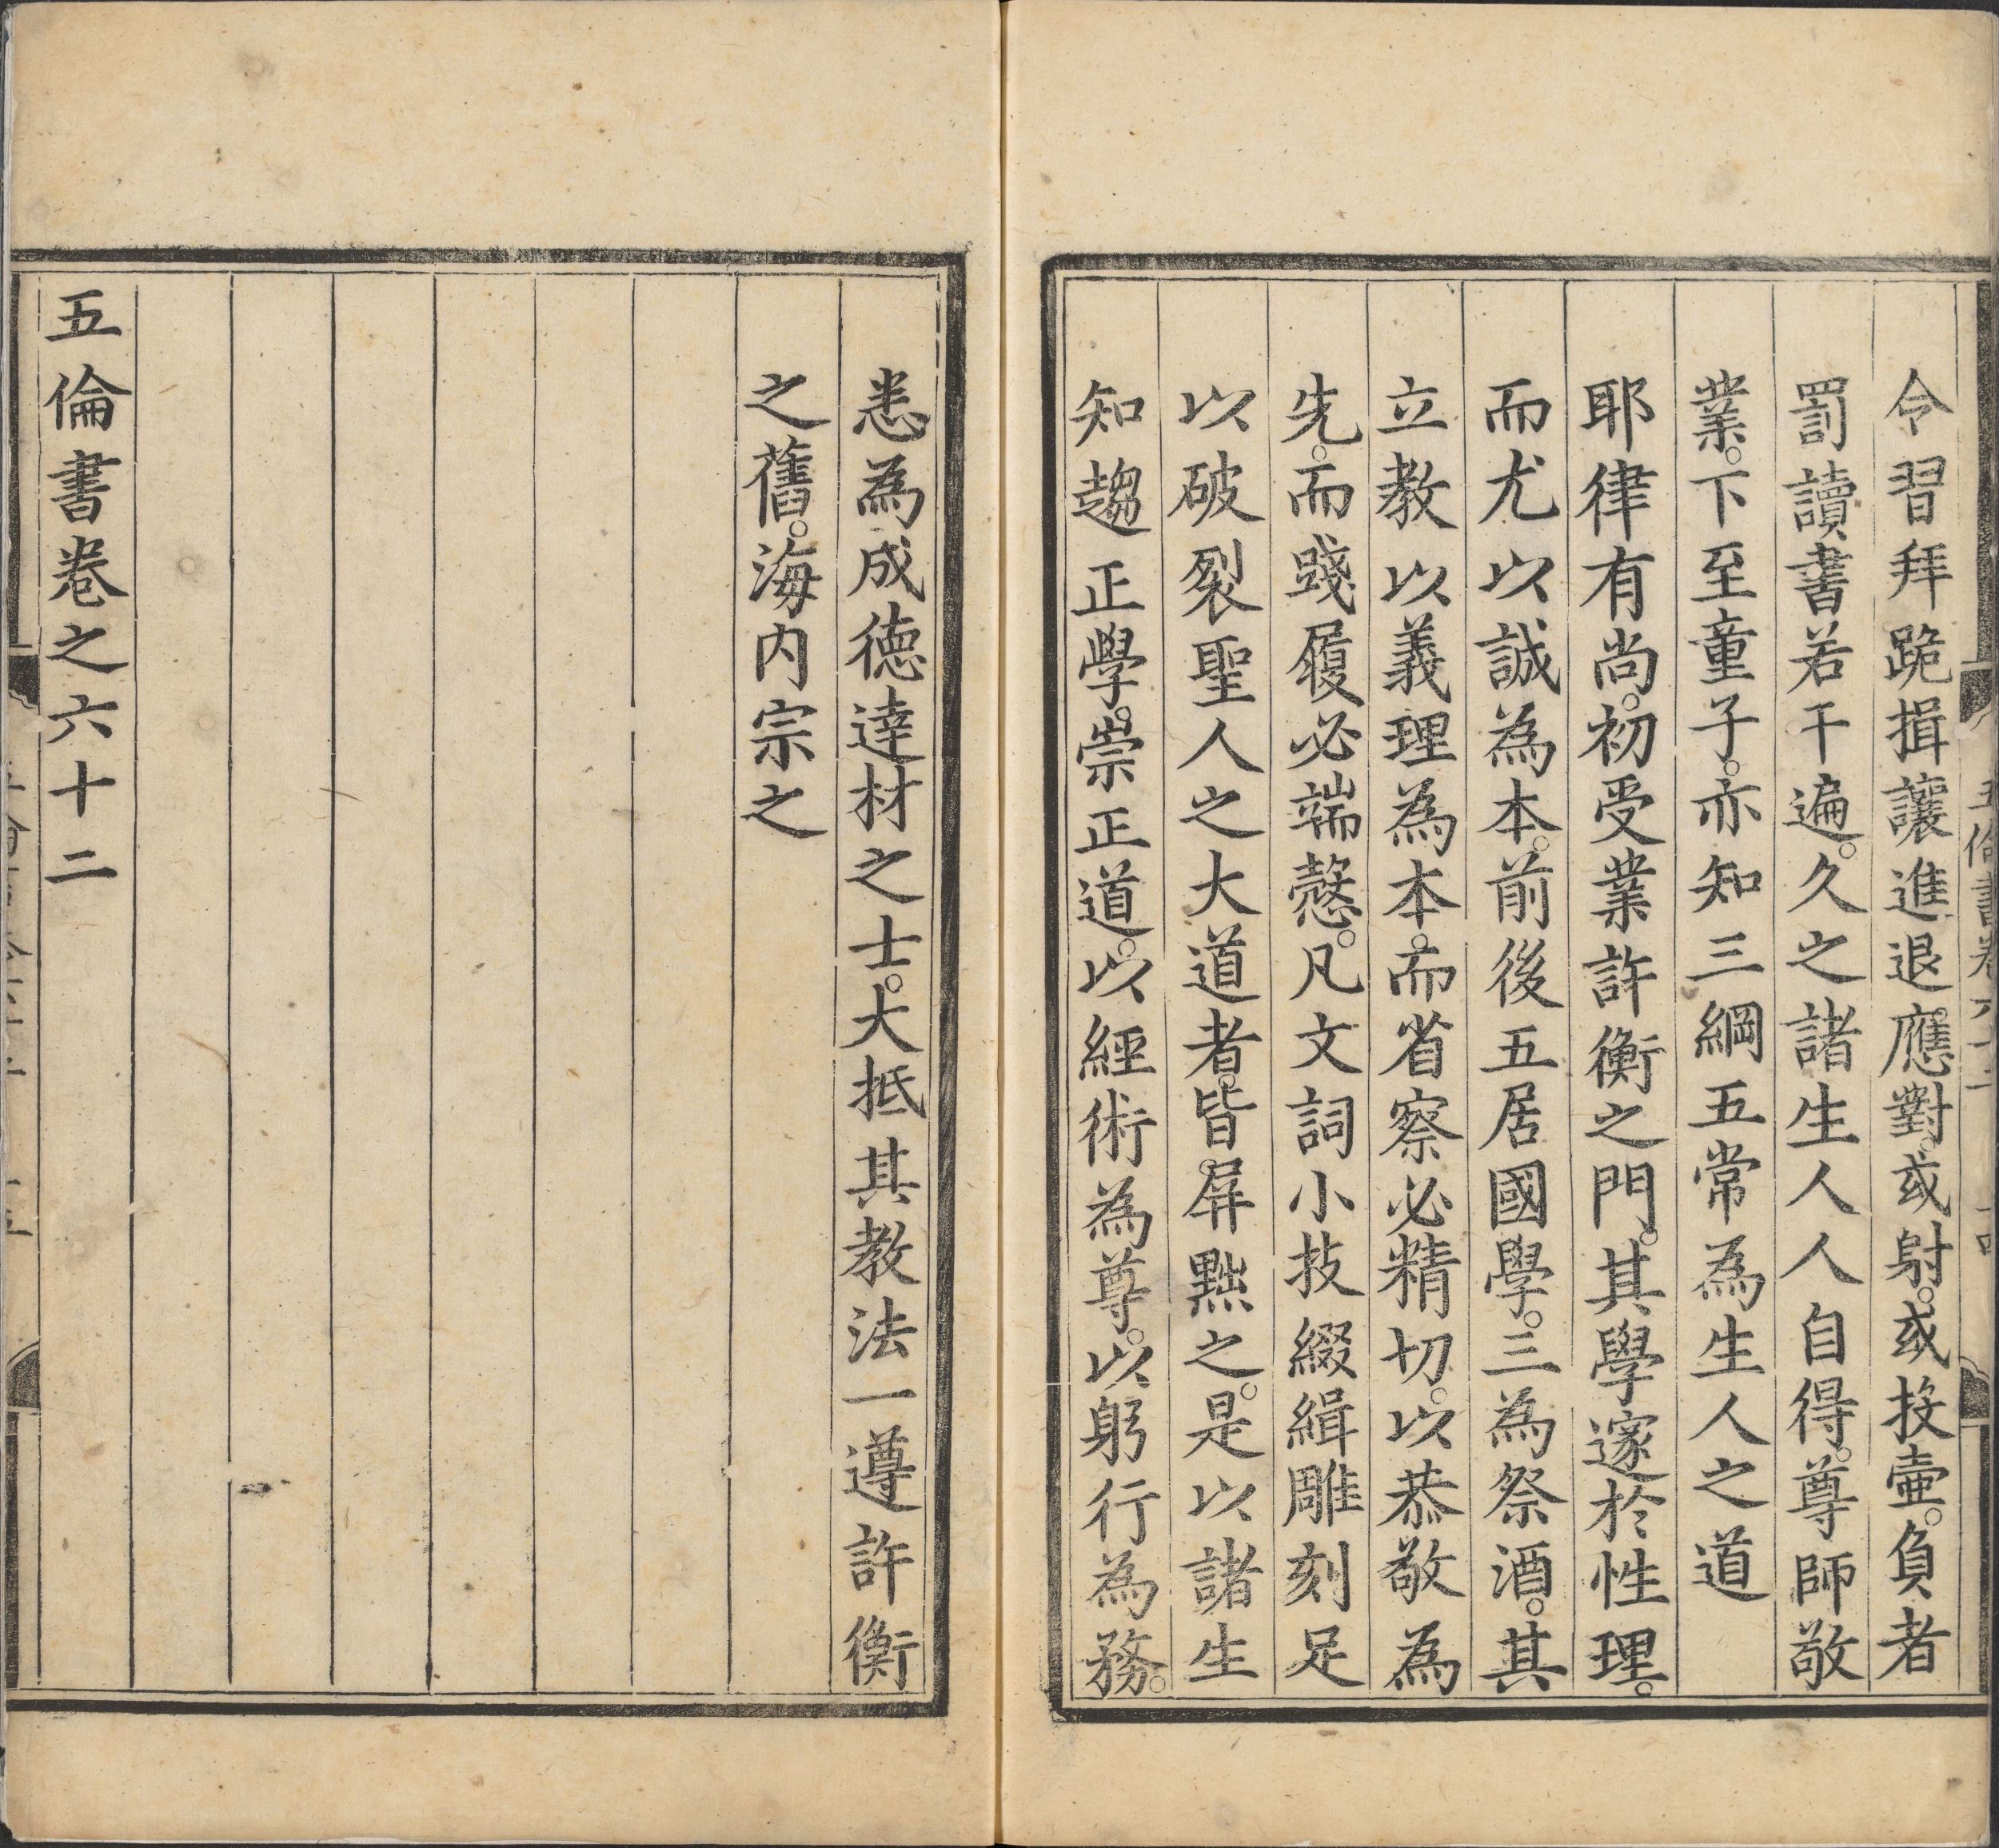 令習拜跪揖讓進退應對。或射。或投壷。負者
罰讀書若干遍。久之諸生人人自得。尊師敬
業。下至童子。亦知三綱五常為生人之道
耶律有尚。初受業許衡之門。其學邃於性理。
而尤以誠為本。前後五居國學。三為祭酒。其
立教以義理為本。而省察必精切。以恭敬為
先。而踐履必端慤。凡文詞小技綴緝雕刻足
以破裂聖人之大道者。皆屏黜之。是以諸生
知趨正學。崇正道。以經術為尊。以躬行為務。
五倫書卷六十二
悉為成德達材之士。大抵其教法一遵許衡
之舊。海内宗之
五倫書卷之六十二